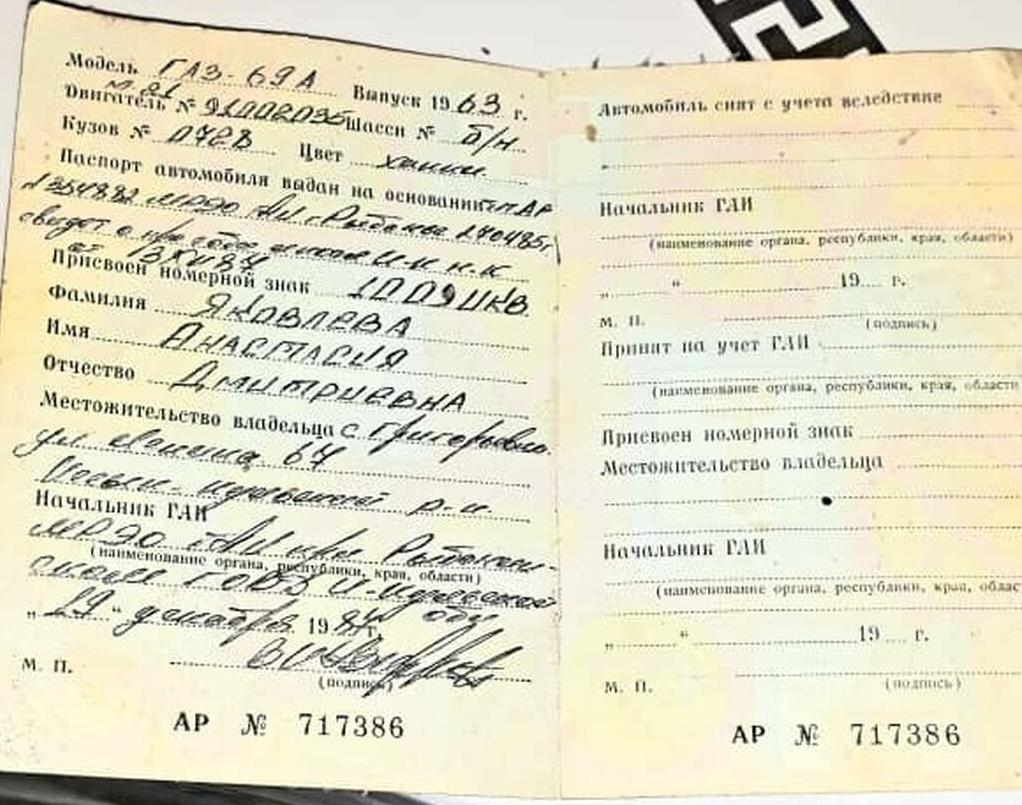 Модель ГАЗ-69А Выпуск 1963 г.
М-21
Двигатель № Шасси № б/н
Кузов № Цвет хакки
Паспорт автомобиля выдан на основании т.п АР
354882 МРЭО г. Рыбачье
свидет о
Присвоен номерной знак
Фамилия ЯКОВЛЕВА
Имя АНАСТАСИЯ
Отчество ДМИТРИЕВНА
Местожительство владельца с Григорьевка
ул Ленина 64
р-н
Начальник ГАИ
МРЭО ГАИ при
(наименование органа, республики, края, области)
ском ГОВД
„29“ декабря 1984 г.
М. П.
(подпись)
АР № 717386
Автомобиль снят с учета вследствие
Начальник ГАИ
(наименование органа, республики, края, области)
„ “ 19 г.
М. П. (подпись)
Принят на учет ГАИ
(наименование органа, республики, края, области
Присвоен номерной знак
Местожительство владельца
Начальник ГАИ
(наименование органа, республики, края, области
„ “ 19 г.
М. П. (подпись)
АР № 717386